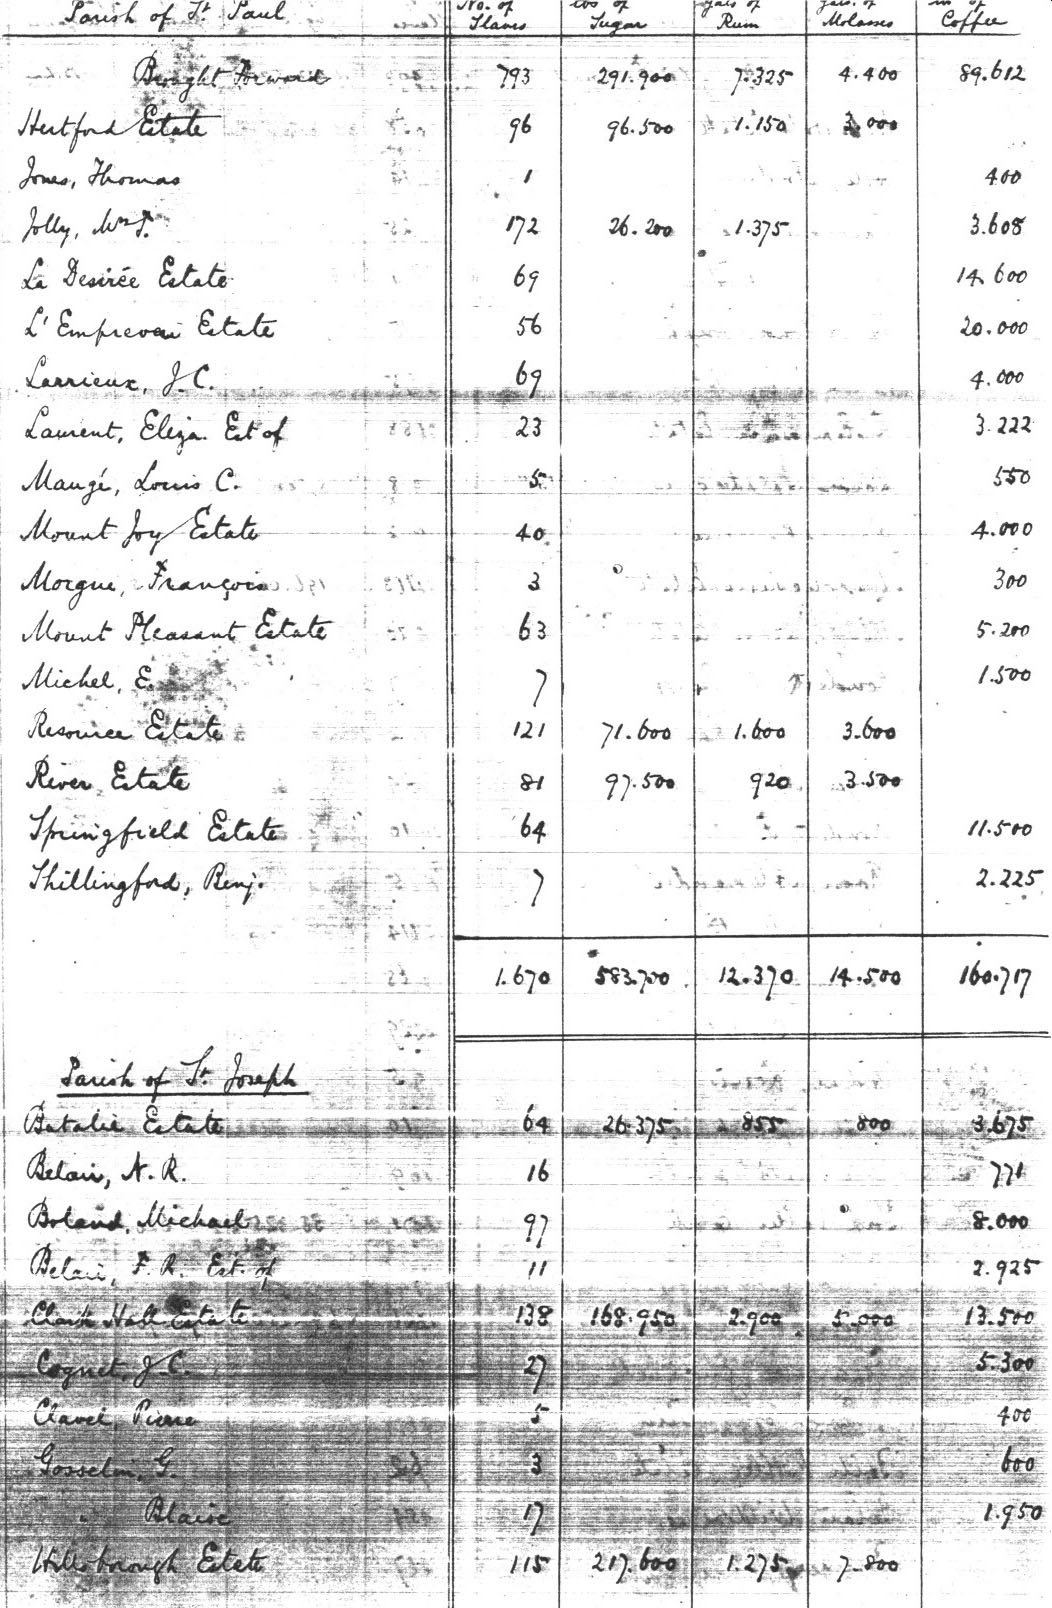 Parish of St. Paul No. of Slaves lbs of Sugar gals of Rum gals. of Molasses lbs of Coffee
Brought Forward 793 291.900 7.325 4.400 89.612
Hertford Estate 96 96.500 1.150 3.000
Jones, Thomas 1 400
Jolly, Mrs J. 172 26.200 1.375 3.608
La Desirée Estate 69 14.600
L' Emprevoir Estate 56 20.000
Larrieux, J.C. 69 4.000
Laurent, Eliza. Est of 23 3.222
Maugé, Louis C. 5 550
Mount Joy Estate 40 4.000
Morgue, François 3 300
Mount Pleasant Estate 63 5.200
Michel, E. 7 1.500
Resource Estate 121 71.600 1.600 3.600
River Estate 81 97.500 920 3.500
Springfield Estate 64 11.500
Shillingford, Benj. 7 2.225
1.670 583.700 12.370 14.500 160.717
Parish of St. Joseph
Batalie Estate 64 26.375 855 800 3.675
Belair, N.R. 16 771
Boland, Michael 97 8.000
Belair, F.R. Est. of 11 2.925
Clark Hall Estate 138 168.950 2.900 5.000 13.500
Cognet, J.C. 27 5.300
Clavel, Pierre 5 400
Gosselin, G. 3 600
" Blaise 17 1.950
Hillsborough Estate 115 217.600 1.275 7.800